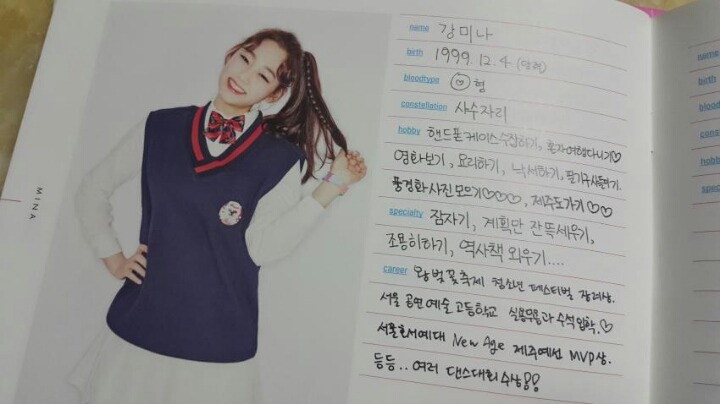 MINA
name 강미나
birth 1999. 12. 4 (양력)
bloodtype O형
constellation 사수자리
hobby 핸드폰케이스수집하기, 혼자여행다니기♡
영화보기, 요리하기, 낙서하기, 필기구사들이기.
풍경화사진모으기♡♡♡, 제주도가기♡♡
specialty 잠자기, 계획만 잔뜩세우기,
조용히하기, 역사책 외우기....
career 왕벚꽃축제 청소년 페스티벌 장려상.
서울공연예술고등학교 실용무용과 수석입학.♡
서울호서예대 New Age 제주예선 MVP상.
등등.. 여러 댄스대회수상!!
name
birth
bloo
cons
hobb
spec